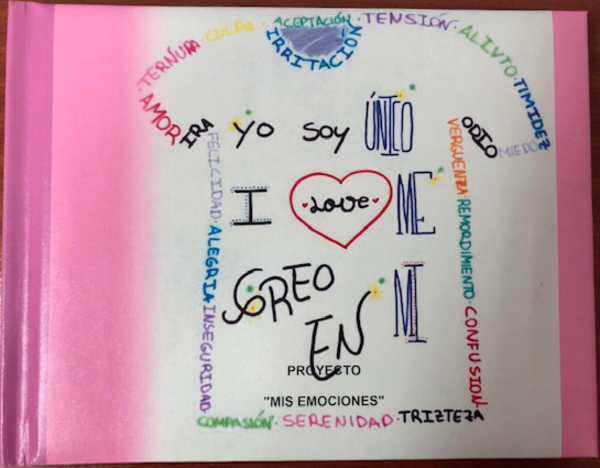 TERNURA · CULPA · ACEPTACIÓN · TENSIÓN · ALIVIO · TIMIDEZ
IRRITACIÓN
AMOR IRA
ODIO MIEDO
YO SOY ÚNICO
I LOVE ME
CREO EN MI
FELICIDAD · ALEGRIA INSEGURIDAD
VERGUENZA REMORDIMIENTO · CONFUSION
PROYECTO
"MIS EMOCIONES"
COMPASIÓN · SERENIDAD · TRIZTEZA